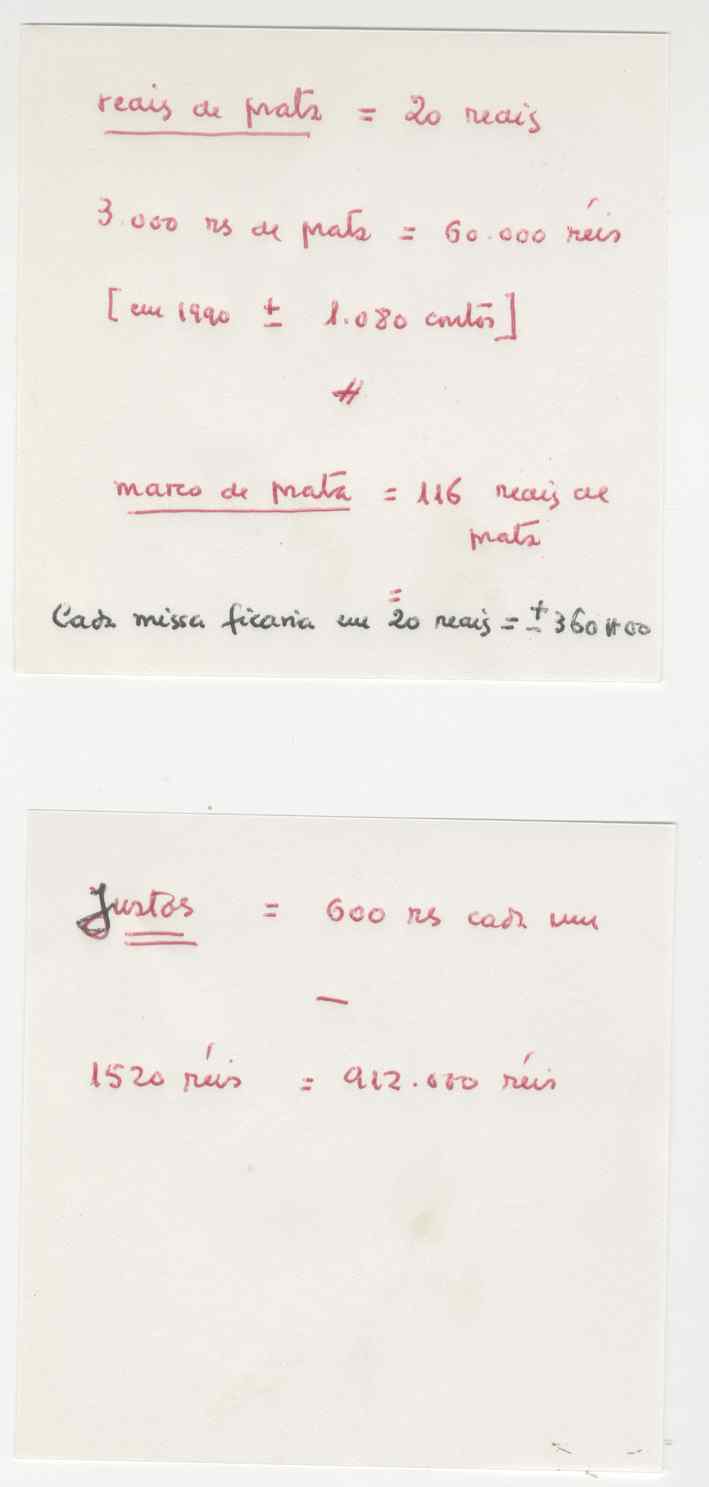 reais de prata = 20 reais
3.000 rs de prata = 60.000 réis
[em 1990 ± 1.080 contos]
#
marco de prata = 116 reais de
prata
=
Cada missa ficaria em 20 reais = ± 360#00
Justos = 600 rs cada um
—
1520 réis = 912.000 réis